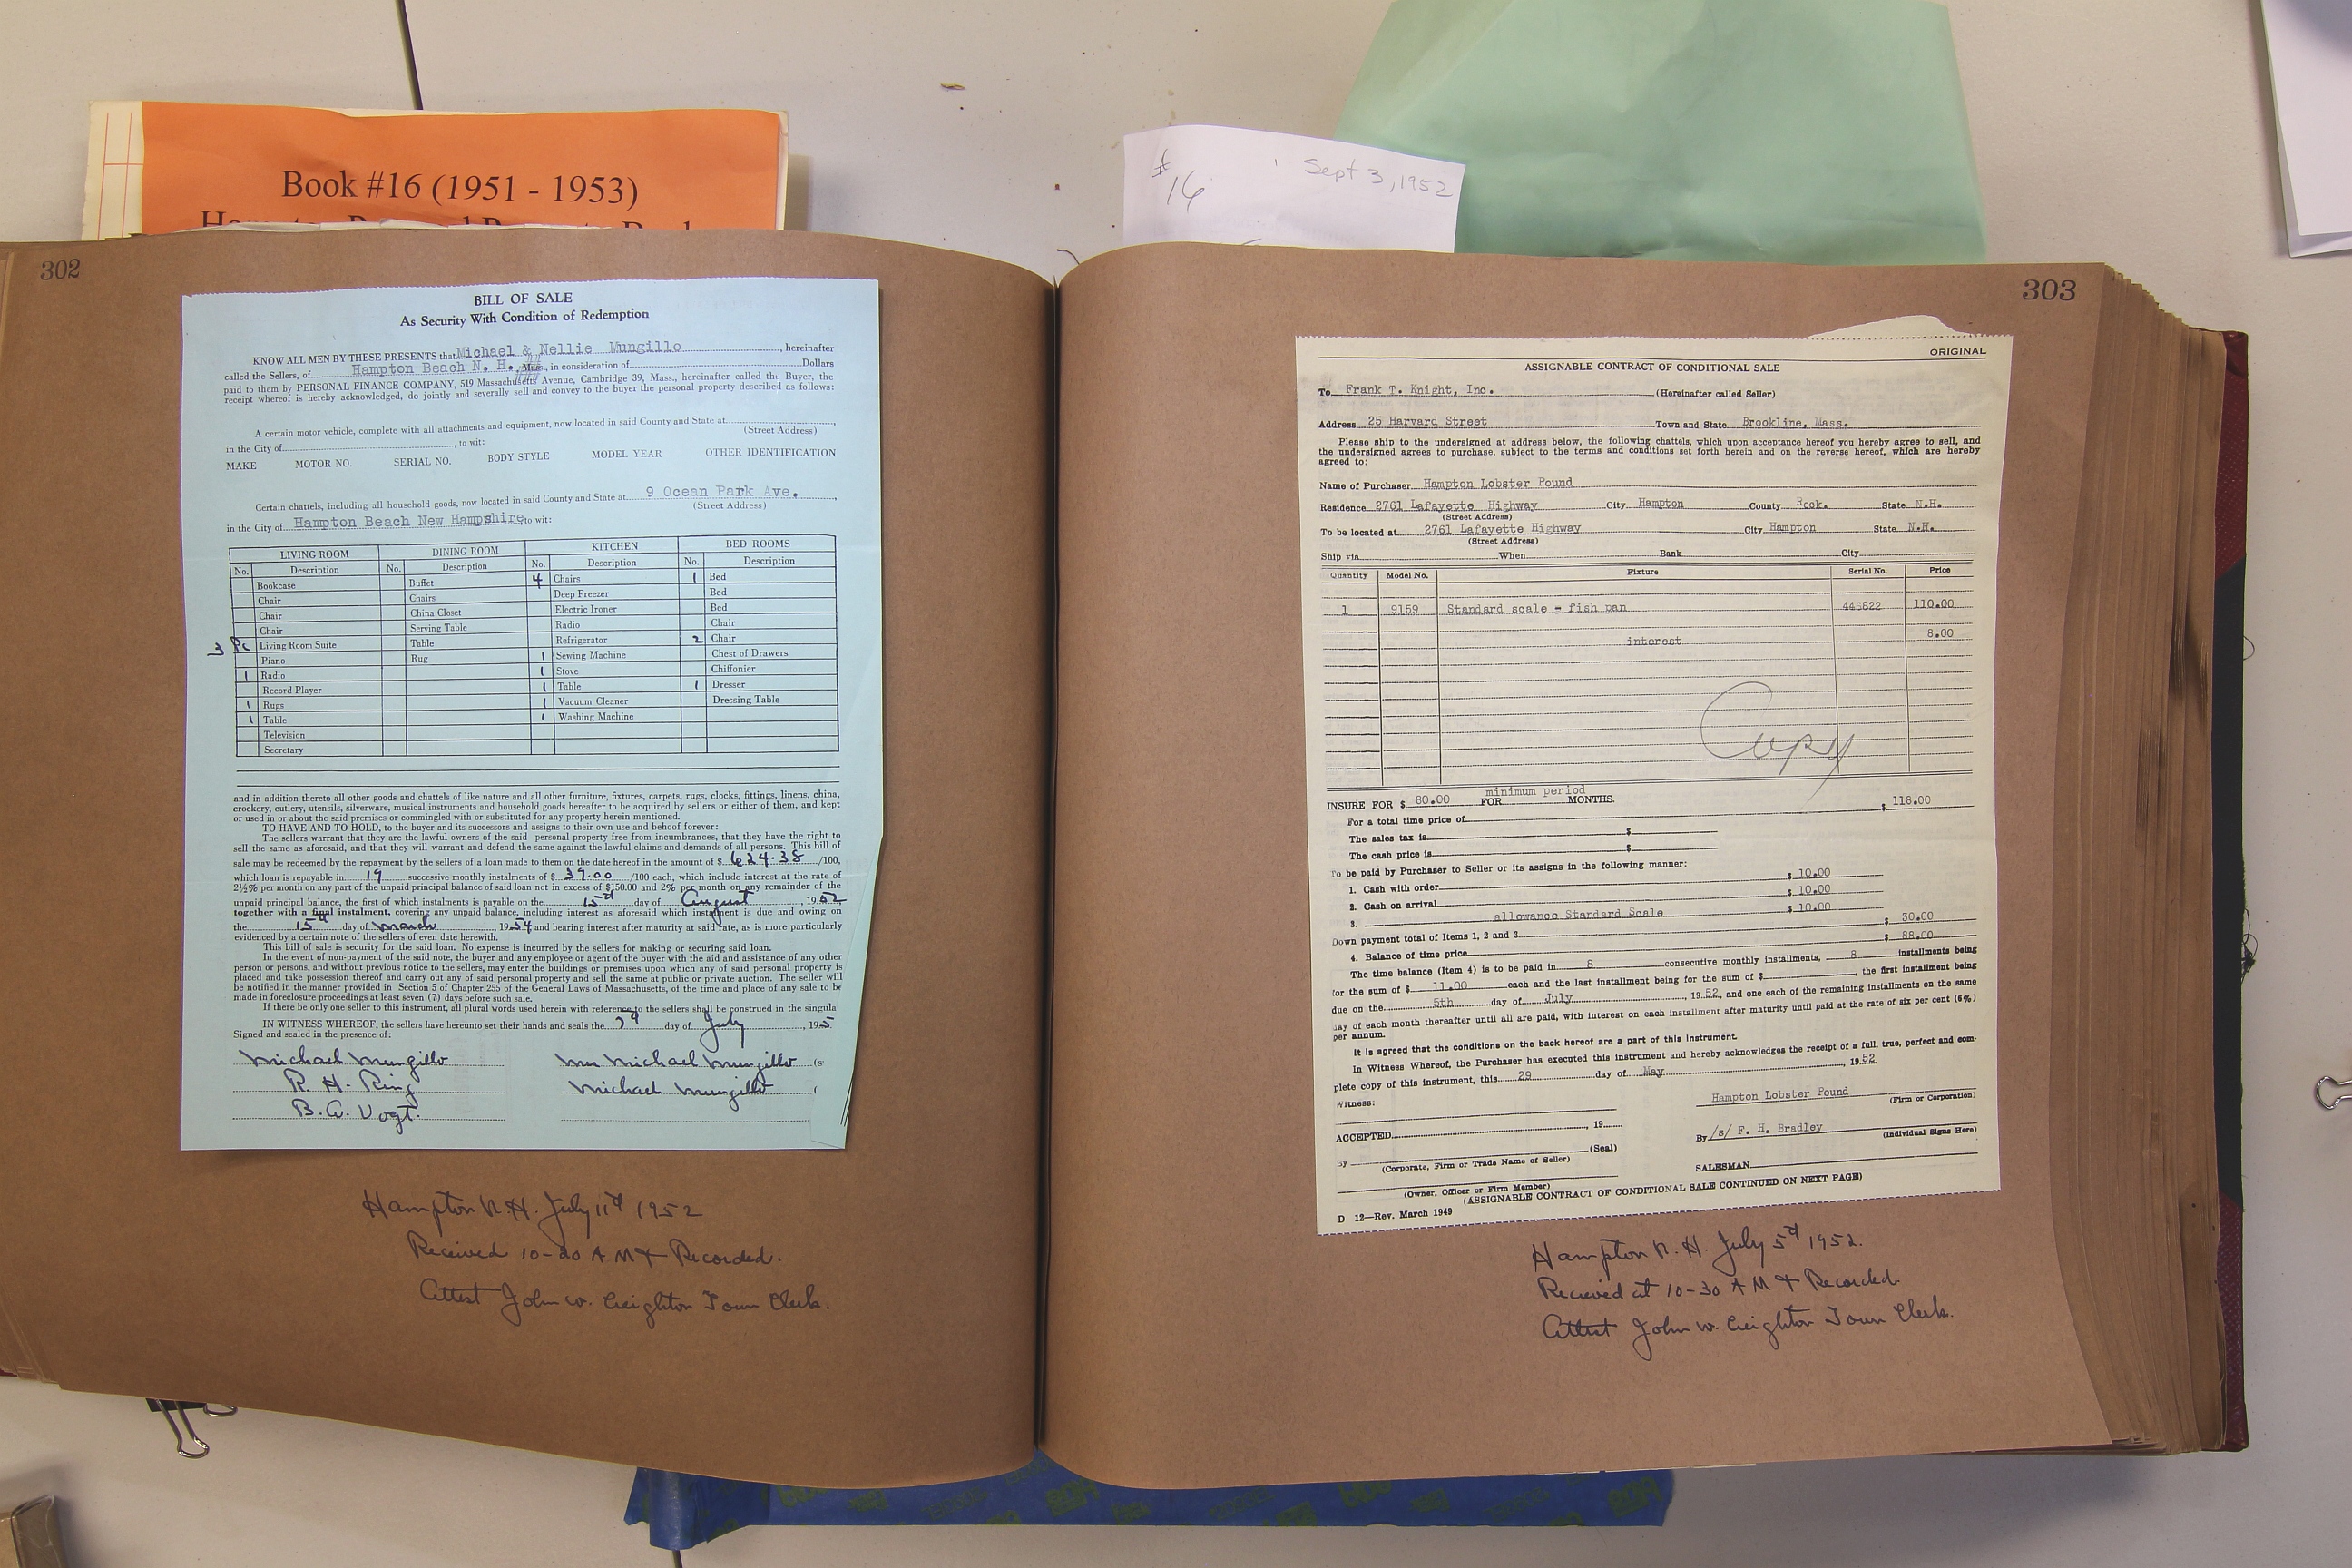 Book #16 (1951 - 1953)
# 16 Sept 3, 1952
302
BILL OF SALE
As Security With Condition of Redemption
KNOW ALL MEN BY THESE PRESENTS that Michael & Nellie Mungillo, hereinafter
called the Sellers, of Hampton Beach N. H., Mass., in consideration of Dollars
paid to them by PERSONAL FINANCE COMPANY, 519 Massachusetts Avenue, Cambridge 39, Mass., hereinafter called the Buyer, the
receipt whereof is hereby acknowledged, do jointly and severally sell and convey to the buyer the personal property described as follows:
A certain motor vehicle, complete with all attachments and equipment, now located in said County and State at
(Street Address)
in the City of , to wit:
MAKE MOTOR NO. SERIAL NO. BODY STYLE MODEL YEAR OTHER IDENTIFICATION
Certain chattels, including all household goods, now located in said County and State at 9 Ocean Park Ave.,
(Street Address)
in the City of Hampton Beach New Hampshire, to wit:
LIVING ROOM DINING ROOM KITCHEN BED ROOMS
No. Description No. Description No. Description No. Description
Bookcase Buffet 4 Chairs 1 Bed
Chair Chairs Deep Freezer Bed
Chair China Closet Electric Ironer Bed
Chair Serving Table Radio Chair
3 Pc Living Room Suite Table Refrigerator 2 Chair
Piano Rug 1 Sewing Machine Chest of Drawers
1 Radio 1 Stove Chiffonier
Record Player 1 Table 1 Dresser
1 Rugs 1 Vacuum Cleaner Dressing Table
1 Table 1 Washing Machine
Television
Secretary
and in addition thereto all other goods and chattels of like nature and all other furniture, fixtures, carpets, rugs, clocks, fittings, linens, china,
crockery, cutlery, utensils, silverware, musical instruments and household goods hereafter to be acquired by sellers or either of them, and kept
or used in or about the said premises or commingled with or substituted for any property herein mentioned.
TO HAVE AND TO HOLD, to the buyer and its successors and assigns to their own use and behoof forever:
The sellers warrant that they are the lawful owners of the said personal property free from incumbrances, that they have the right to
sell the same as aforesaid, and that they will warrant and defend the same against the lawful claims and demands of all persons. This bill of
sale may be redeemed by the repayment by the sellers of a loan made to them on the date hereof in the amount of $ 624.38 /100,
which loan is repayable in 19 successive monthly instalments of $ 39.00 /100 each, which include interest at the rate of
2½% per month on any part of the unpaid principal balance of said loan not in excess of $150.00 and 2% per month on any remainder of the
unpaid principal balance, the first of which instalments is payable on the 15th day of August, 1952
together with a final instalment, covering any unpaid balance, including interest as aforesaid which instalment is due and owing on
the 15th day of March, 1954 and bearing interest after maturity at said rate, as is more particularly
evidenced by a certain note of the sellers of even date herewith.
This bill of sale is security for the said loan. No expense is incurred by the sellers for making or securing said loan.
In the event of non-payment of the said note, the buyer and any employee or agent of the buyer with the aid and assistance of any other
person or persons, and without previous notice to the sellers, may enter the buildings or premises upon which any of said personal property is
placed and take possession thereof and carry out any of said personal property and sell the same at public or private auction. The seller will
be notified in the manner provided in Section 5 of Chapter 255 of the General Laws of Massachusetts, of the time and place of any sale to be
made in foreclosure proceedings at least seven (7) days before such sale.
If there be only one seller to this instrument, all plural words used herein with reference to the sellers shall be construed in the singula
IN WITNESS WHEREOF, the sellers have hereunto set their hands and seals the day of July, 195
Signed and sealed in the presence of:
Michael Mungillo Mrs Michael Mungillo (s
R. H. Ring Michael Mungillo (
B. A. Vogt.
Hampton N.H. July 11th 1952
Received 10-20 AM & Recorded.
Attest John W. Creighton Town Clerk.
303
ORIGINAL
ASSIGNABLE CONTRACT OF CONDITIONAL SALE
To Frank T. Knight, Inc. (Hereinafter called Seller)
Address 25 Harvard Street Town and State Brookline, Mass.
Please ship to the undersigned at address below, the following chattels, which upon acceptance hereof you hereby agree to sell, and
the undersigned agrees to purchase, subject to the terms and conditions set forth herein and on the reverse hereof, which are hereby
agreed to:
Name of Purchaser Hampton Lobster Pound
Residence 2761 Lafayette Highway City Hampton County Rock. State N.H.
(Street Address)
To be located at 2761 Lafayette Highway City Hampton State N.H.
(Street Address)
Ship via When Bank City
Quantity Model No. Fixture Serial No. Price
1 9159 Standard scale - fish pan 446822 110.00
interest 8.00
Copy
minimum period
INSURE FOR $ 80.00 FOR MONTHS.
For a total time price of $ 118.00
The sales tax is $
The cash price is $
To be paid by Purchaser to Seller or its assigns in the following manner:
1. Cash with order $ 10.00
2. Cash on arrival $ 10.00
3. allowance Standard Scale $ 10.00
Down payment total of Items 1, 2 and 3 $ 30.00
4. Balance of time price $ 88.00
The time balance (Item 4) is to be paid in 8 consecutive monthly installments, 8 installments being
for the sum of $ 11.00 each and the last installment being for the sum of $ , the first installment being
due on the 5th day of July, 1952, and one each of the remaining installments on the same
day of each month thereafter until all are paid, with interest on each installment after maturity until paid at the rate of six per cent (6%)
per annum.
It is agreed that the conditions on the back hereof are a part of this instrument.
In Witness Whereof, the Purchaser has executed this instrument and hereby acknowledges the receipt of a full, true, perfect and com-
plete copy of this instrument, this 29 day of May, 1952
Witness:
Hampton Lobster Pound
(Firm or Corporation)
ACCEPTED , 19
By /s/ F. H. Bradley
(Individual Signs Here)
By (Seal)
(Corporate, Firm or Trade Name of Seller)
SALESMAN
(Owner, Officer or Firm Member)
(ASSIGNABLE CONTRACT OF CONDITIONAL SALE CONTINUED ON NEXT PAGE)
D 12—Rev. March 1949
Hampton N. H. July 5th 1952.
Recieved at 10-30 AM & Recorded.
Attest John W. Creighton Town Clerk.